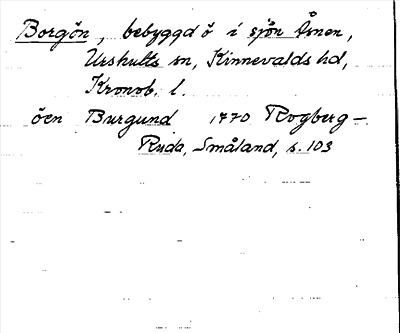 Borgön, bebyggd ö i sjön Åsnen,
Urshults sn, Kinnevalds hd,
Kronob. l.
öen Burgund 1770 Rogberg –
Ruda, Småland, s. 103